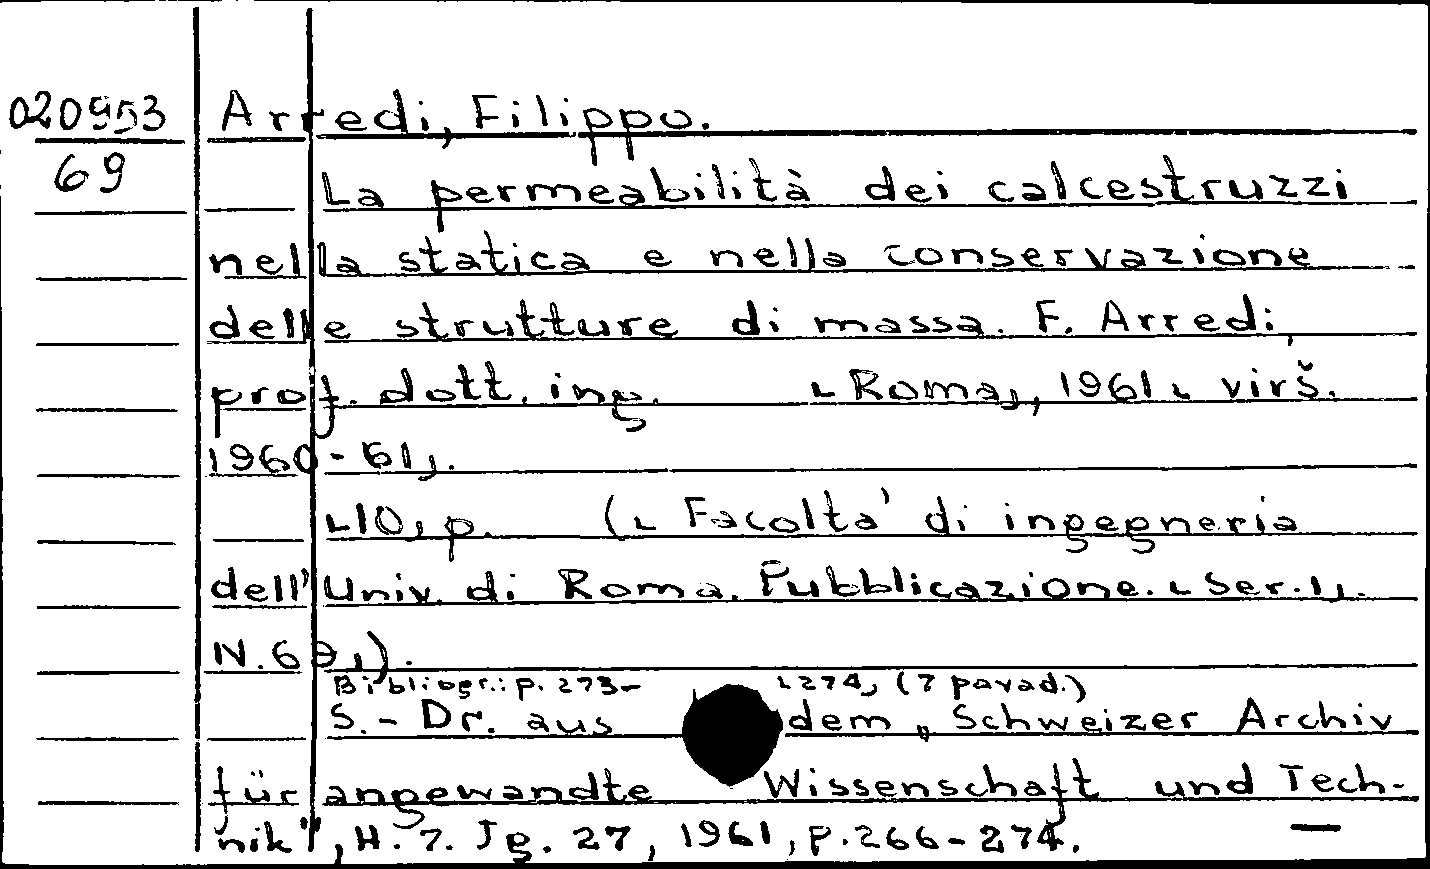 020953
69
Arredi, Filippo.
La permeabilità dei calcestruzzi
nella statica e nella conservazione
delle strutture di massa. F. Arredi,
prof. dott. ing. [Roma], 1961 [virš.
1960-61].
[10] p. ([Facolta' di ingegneria
dell' Univ. di Roma. Pubblicazione. [Ser.1].
N.69]).
Bibliogr.: p. 273-[274] (7 pavad.)
S.-Dr. aus dem „Schweizer Archiv
für angewandte Wissenschaft und Tech-
nik", H. 7. Jg. 27, 1961, p.266-274. —